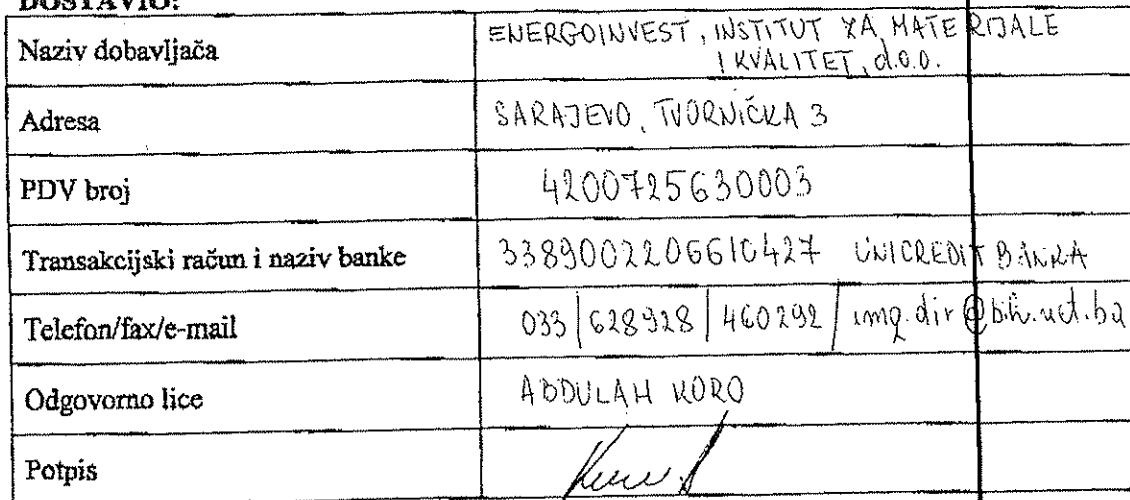 DOSTAVIO:
Naziv dobavljača
ENERGOINVEST, INSTITUT ZA MATERIJALE
I KVALITET, d.o.o.
Adresa
SARAJEVO, TVORNIČKA 3
PDV broj
4200725630003
Transakcijski račun i naziv banke
3389002206610427 UNICREDIT BANKA
Telefon/fax/e-mail
033/628928/460292/imq.dir@bih.net.ba
Odgovorno lice
ABDULAH KORO
Potpis